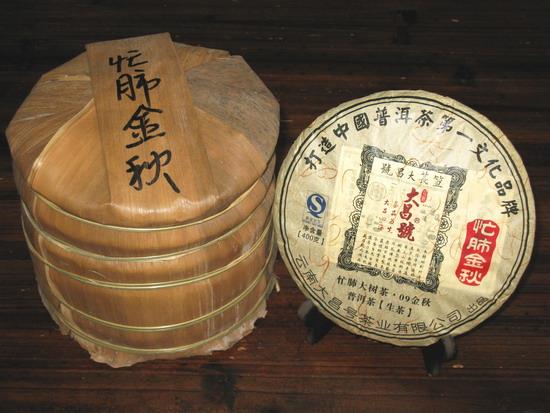 忙肺金秋
打造中國普洱茶第一文化品牌
大昌號
大昌號
净含量
【400克】
忙肺金秋
忙肺大树茶·09金秋
普洱茶【生茶】
云南大昌号茶业有限公司 出品